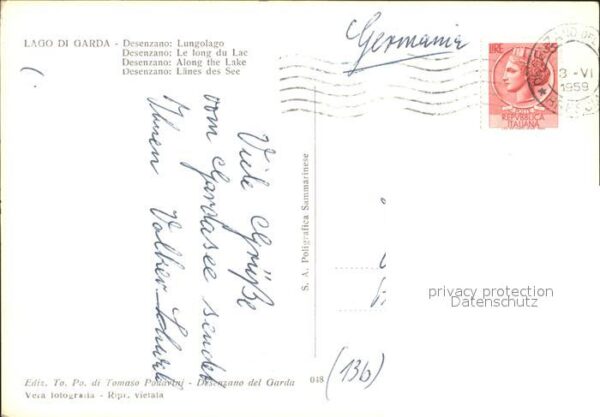 LAGO DI GARDA - Desenzano: Lungolago
Desenzano: Le long du Lac
Desenzano: Along the Lake
Desenzano: Länes des See
Germania
LIRE 35
REPVBBLICA
ITALIANA
3 -VI
1959
Viele Grüße
vom Gardasee sendet
Ihnen Volker
S. A. Poligrafica Sammarinese
privacy protection
Datenschutz
Ediz. To. Po. di Tomaso Padovini - Desenzano del Garda
048
(13b)
Vera fotografia - Ripr. vietata